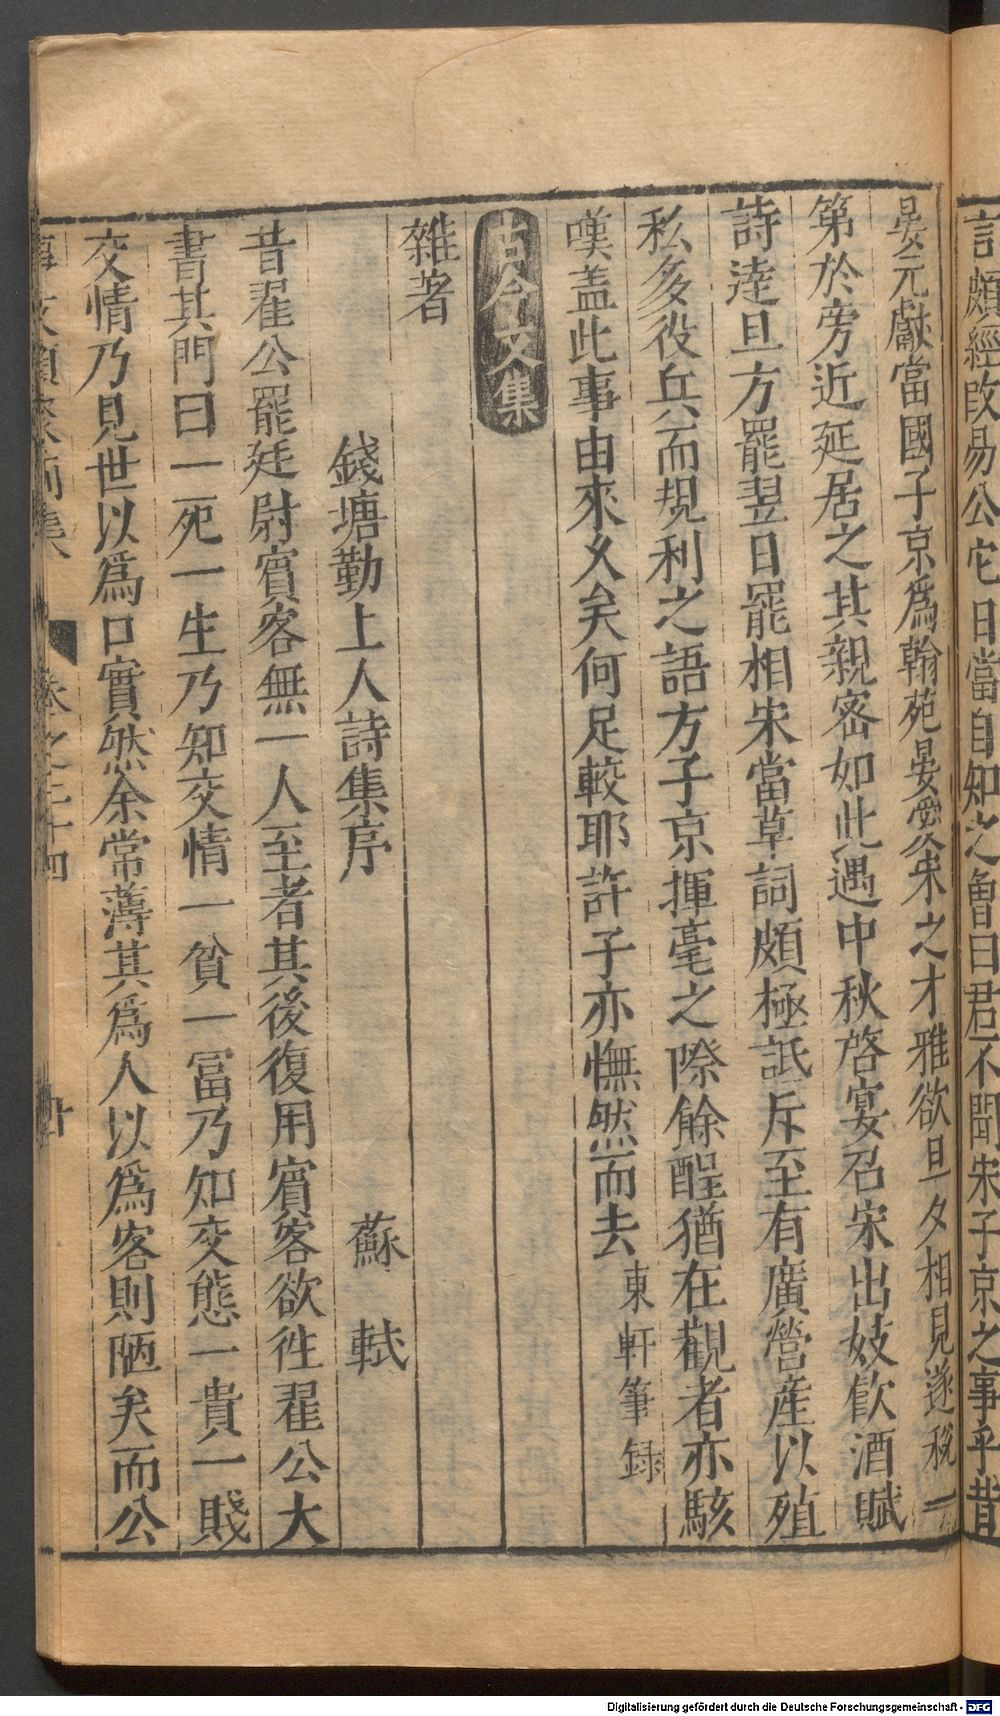 言頗經改易公它日當自知之魯曰君不聞宋子京之事乎昔
晏元獻當國子京爲翰苑晏愛宋之才雅欲旦夕相見遂稅一
第於旁近延居之其親密如此遇中秋啓宴召宋出妓飲酒賦
詩逹旦方罷翌日罷相宋當草詞頗極詆斥至有廣營産以殖
私多役兵而規利之語方子京揮毫之際餘酲猶在觀者亦駭
嘆盖此事由來乆矣何足較耶許子亦憮然而去東軒筆録
古今文集
雜著
錢塘勤上人詩集序 蘇軾
昔翟公罷廷尉賓客無一人至者其後復用賓客欲徃翟公大
書其門曰一死一生乃知交情一貧一冨乃知交態一貴一賤
交情乃見世以爲口實然余常薄其爲人以爲客則陋矣而公
事文類聚前集 卷之三十四 廿
Digitalisierung gefördert durch die Deutsche Forschungsgemeinschaft - DFG